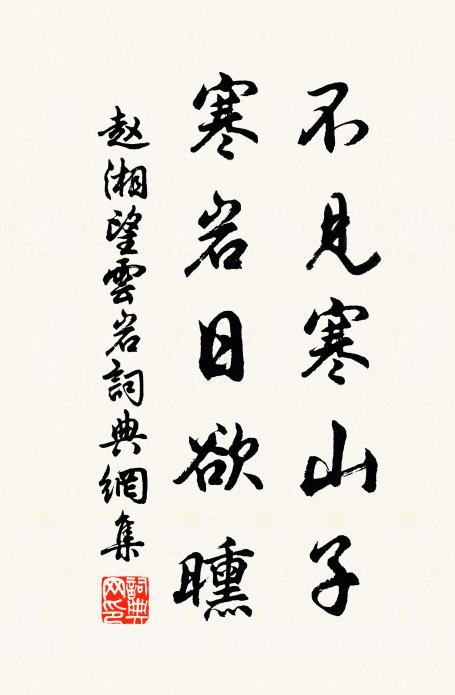 不見寒山子
寒岩日欲曛
赵湘望雲岩詞典網集
詞典網印